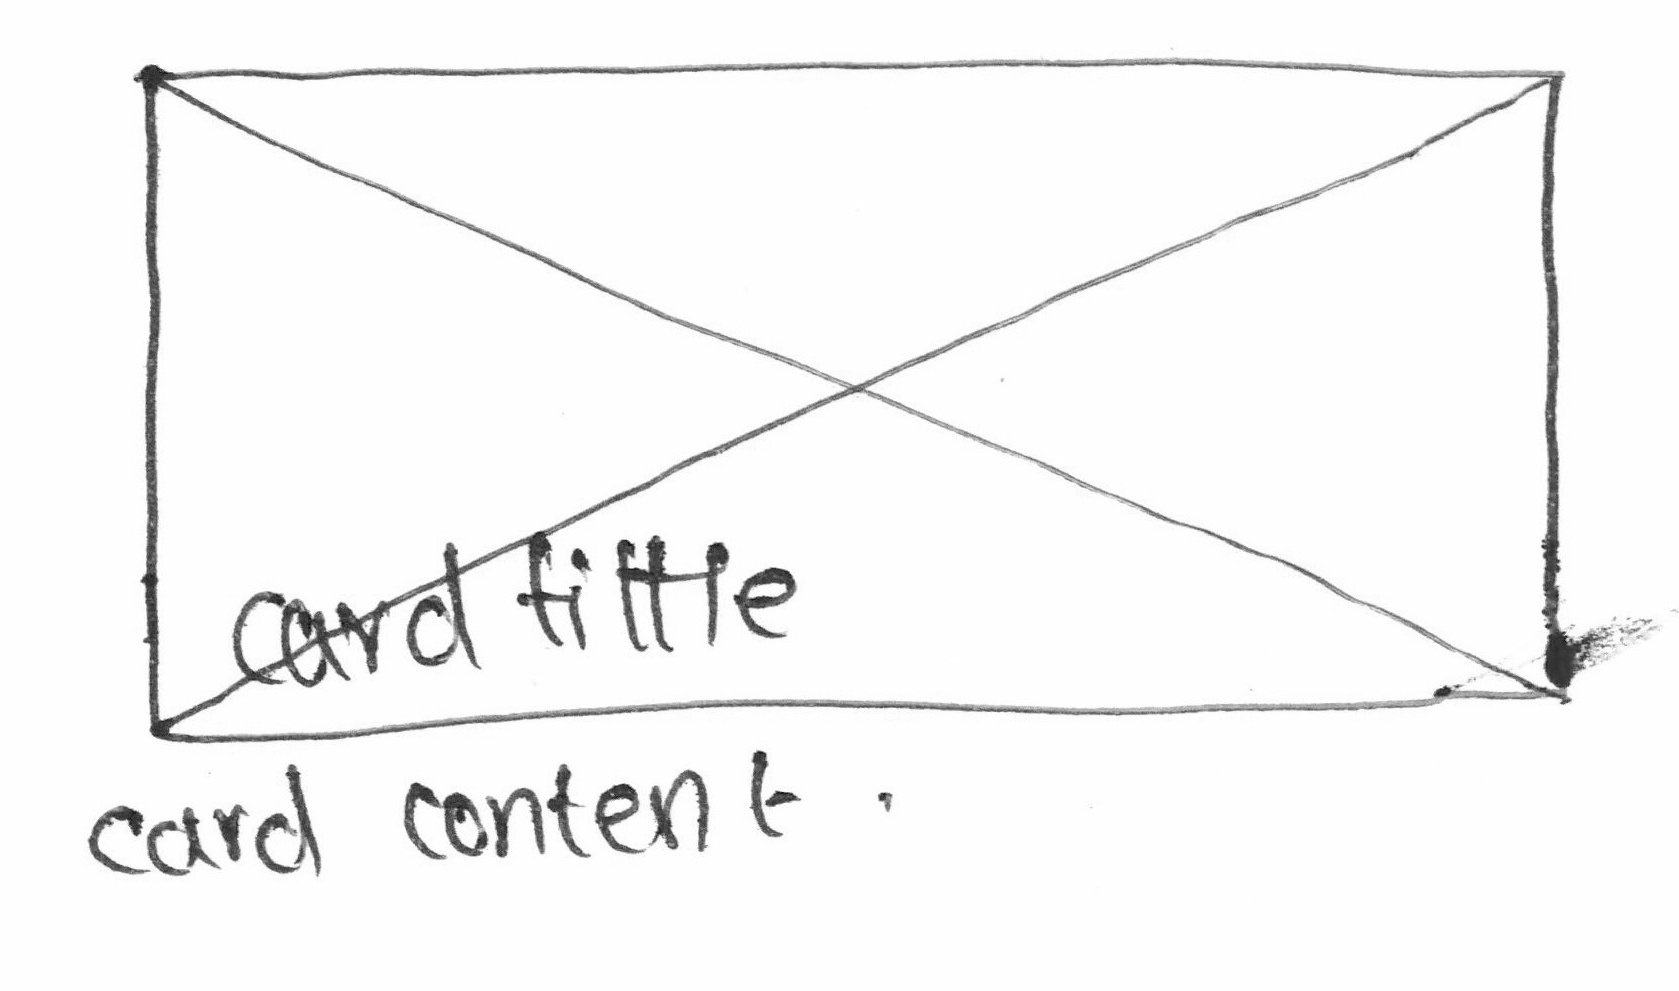 card tittle
card content.